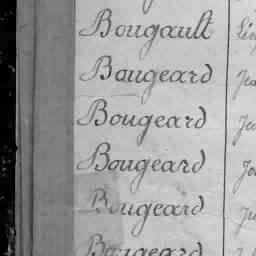 Bougault
Baugeard
Bougeard
Bougeard
Bougeard
Baugeard